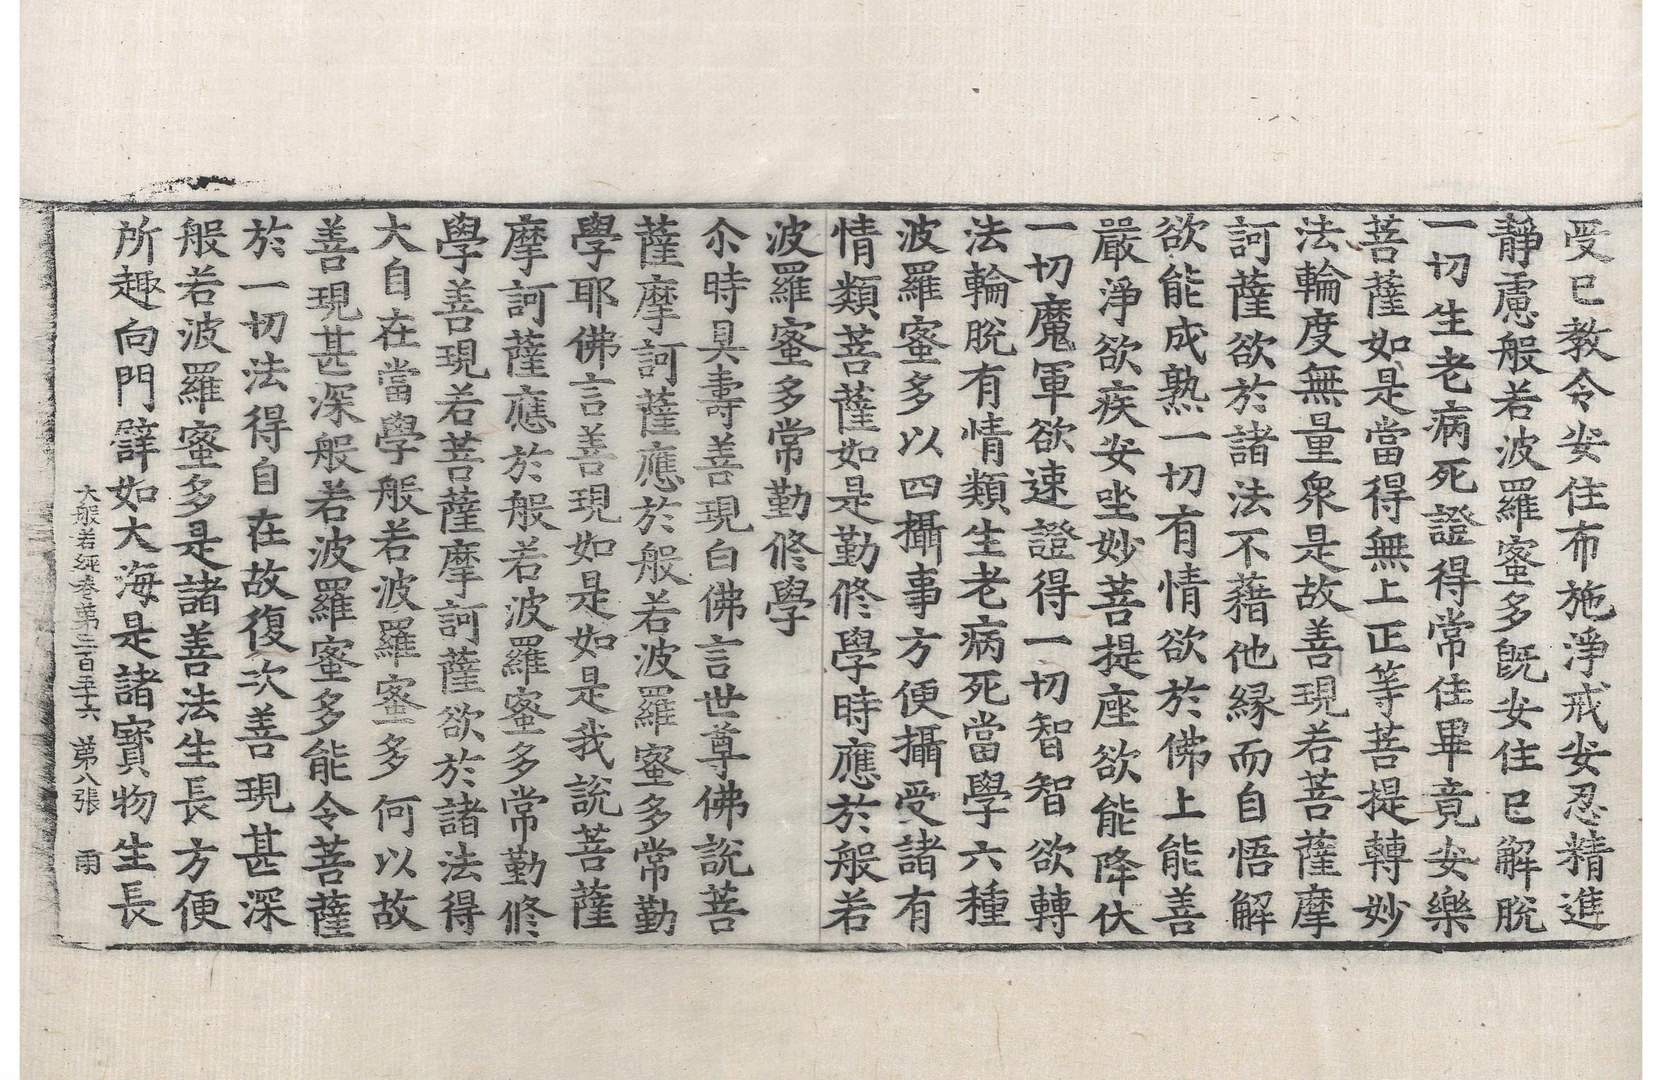 受已教令安住布施淨戒安忍精進
靜慮般若波羅蜜多旣安住已解脫
一切生老病死證得常住畢竟安樂
菩薩如是當得無上正等菩提轉妙
法輪度無量衆是故善現若菩薩摩
訶薩欲於諸法不藉他縁而自悟解
欲能成熟一切有情欲於佛土能善
嚴淨欲疾安坐妙菩提座欲能降伏
一切魔軍欲速證得一切智智欲轉
法輪脫有情類生老病死當學六種
波羅蜜多以四攝事方便攝受諸有
情類菩薩如是勤修學時應於般若
波羅蜜多常勤修學
尒時具壽善現白佛言世尊佛說菩
薩摩訶薩應於般若波羅蜜多常勤
學耶佛言善現如是如是我說菩薩
摩訶薩應於般若波羅蜜多常勤修
學善現若菩薩摩訶薩欲於諸法得
大自在當學般若波羅蜜多何以故
善現甚深般若波羅蜜多能令菩薩
於一切法得自在故復次善現甚深
般若波羅蜜多是諸善法生長方便
所趣向門譬如大海是諸寶物生長
大般若經卷第三百五十六 第八張 雨